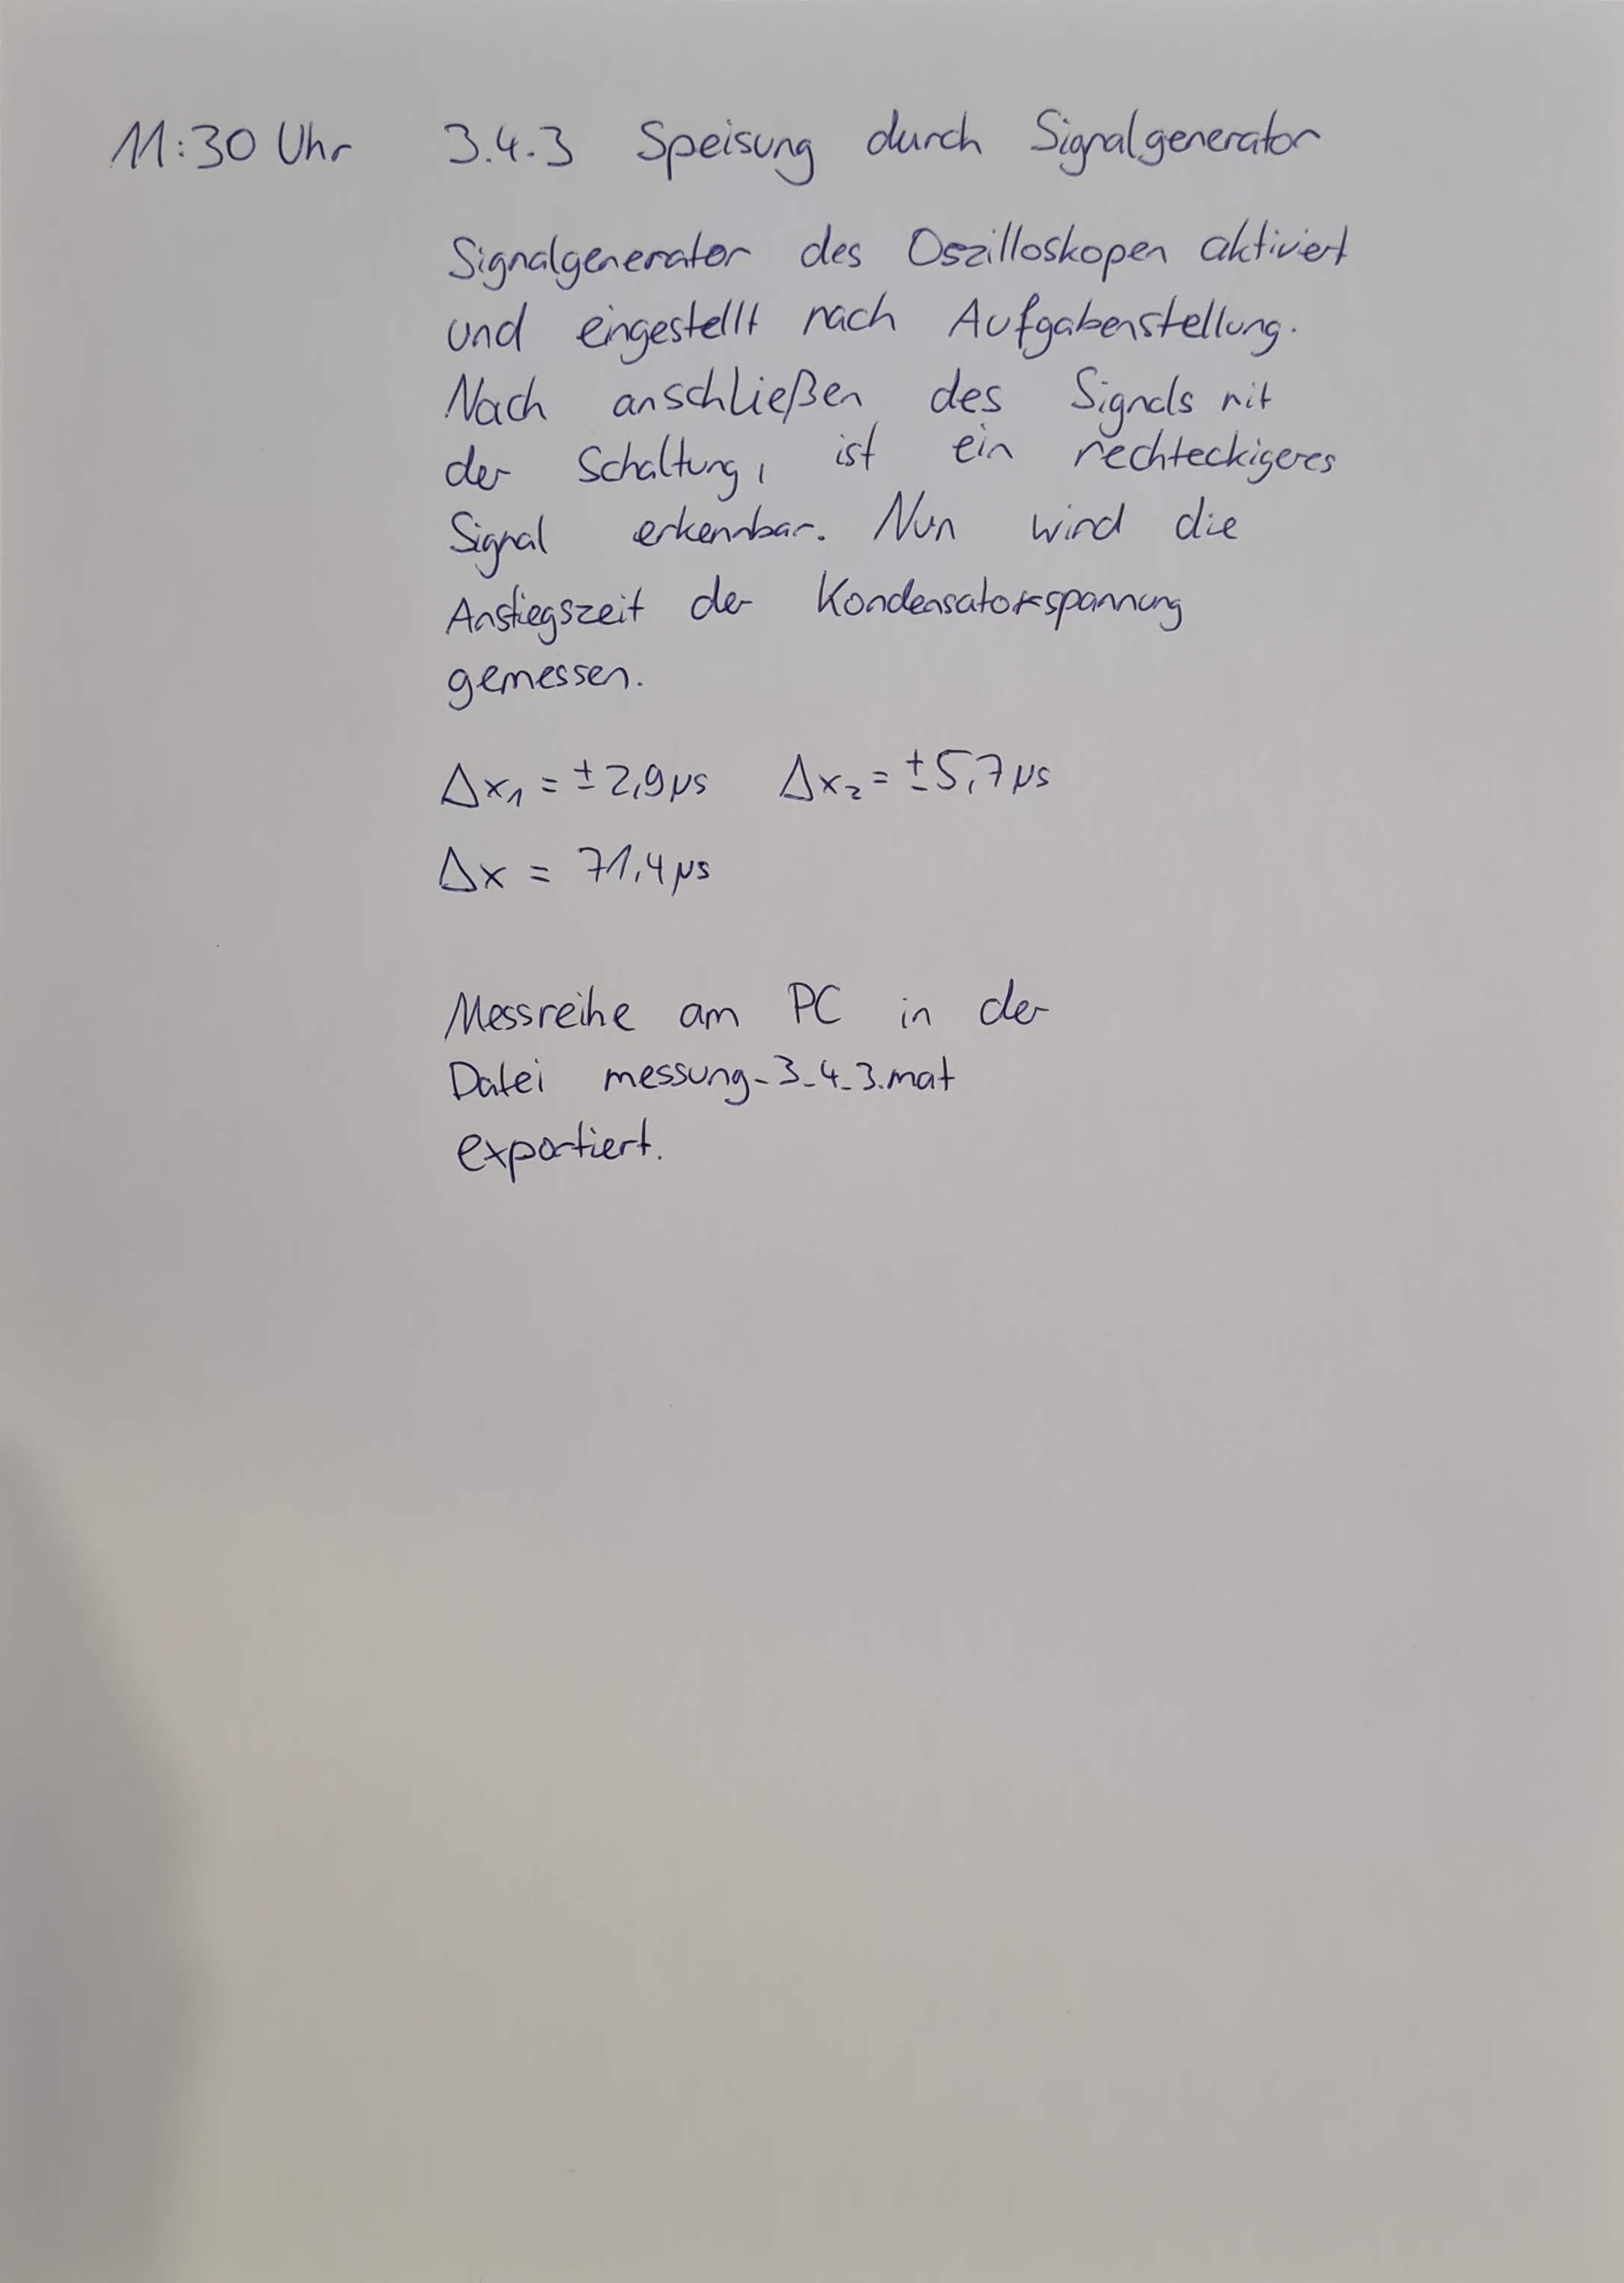 11:30 Uhr 3.4.3 Speisung durch Signalgenerator
Signalgenerator des Oszilloskopen aktiviert
und eingestellt nach Aufgabenstellung.
Nach anschließen des Signals mit
der Schaltung, ist ein rechteckigeres
Signal erkennbar. Nun wird die
Anstiegszeit der Kondensatorspannung
gemessen.
Δx₁ = ±2,9µs Δx₂ = ±5,7µs
Δx = 71,4µs
Messreihe am PC in der
Datei messung_3_4_3.mat
exportiert.